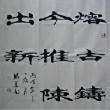 熔古鑄
今推陳
出新